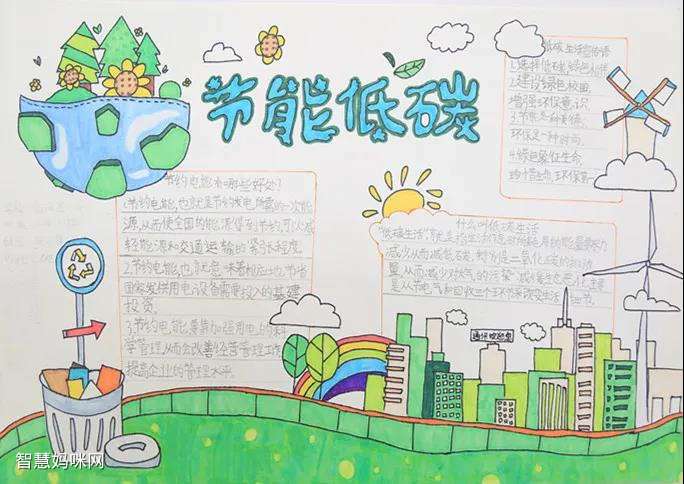 节能低碳
低碳生活宣传语
1.选择低碳,绿色
2.建设绿色校园
增强环保意识
3.节能是种美德
环保是一种时尚
4.绿色象征生命
珍惜 环保
节约电能有哪些好处?
1.节约电能,也就是节约发电所需的一次能
源,从而使全国的能源得到节约,可以减
轻能源和交通运输的紧张程度.
2.节约电能,也就意味着相应地节省
国家发供用电设备需要投入的基建
投资.
3.节约电能,要靠加强用电的科
学管理,从而会改善经营管理工作,
提高企业的管理水平.
什么叫低碳生活
"低碳生活"就是指生活作息时所耗用的能量要尽力
减少,从而减低碳,特别是二氧化碳的排放
量,从而减少对大气的污染,减缓生态恶化,主要
是从节电 气和回收三个环节来改变生活细节.
智慧妈咪网